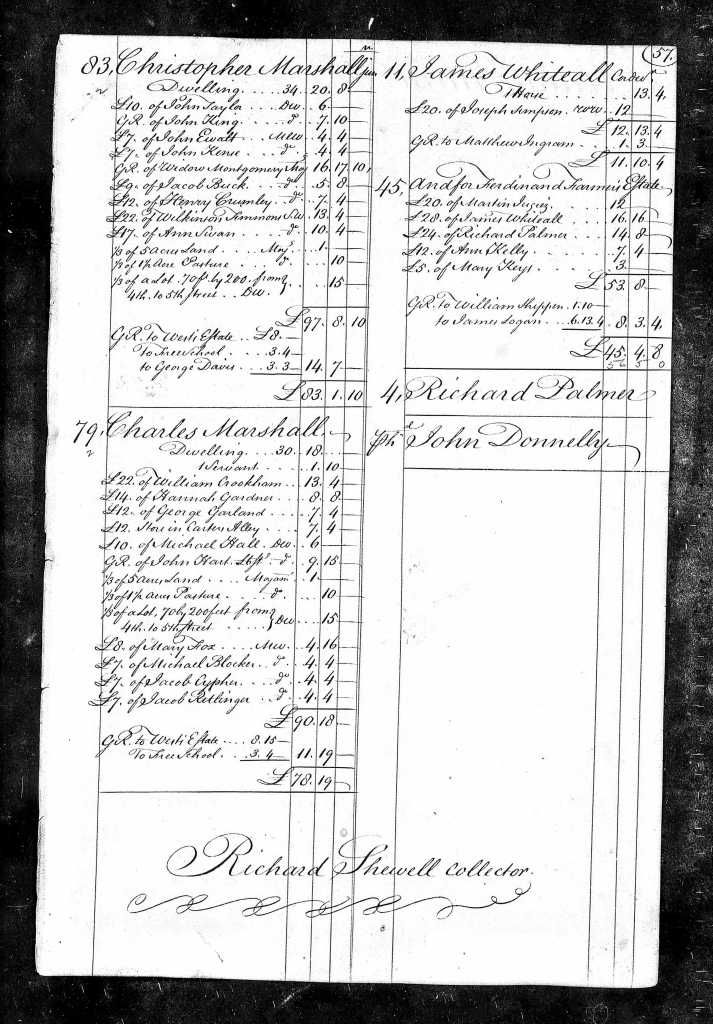 57.
83, Christopher Marshall jun
Dwelling .... 34. 20. 8
£10. of John Taylor .. Dw .. 6
GR. of John King .. do .. 7. 10
£7. of John Ewalt .. Mw .. 4. 4
£7. of John Kerse .. do .. 4. 4
GR. of Widow Montgomery Moy 16. 17. 10,
£9. of Jacob Buck .. do .. 5. 8
£12. of Henry Crumley .. do .. 7. 4
£22. of Wilkinson Timmons 13. 4
£17. of Ann Swan .. do .. 10. 4
⅓ of 5 Acres Land .. Moy .. 1
⅓ of 1½ Acre Pasture .. do .. 10
⅓ of a Lot. 70 ft by 200. from
4th. to 5th Street .. Dw. 15
£ 97. 8. 10
GR. to West's Estate .. £8.
To Free School .. 3. 4
to George Davis .. 3. 3 14. 7
£ 83. 1. 10
79, Charles Marshall
Dwelling .. 30. 18.
1 Servant .... 1. 10
£22. of William Crookham .. 13. 4
£14. of Hannah Gardner ... 8. 8
£12. of George Garland .... 7. 4
£12. Store in Carters Alley ... 7. 4
£10. of Michael Hall .. Dw .. 6
GR. of John Hart. do .. 9. 15
⅓ of 5 acres Land ... 1
⅓ of 1½ acres Pasture .. do ... 10
⅓ of a Lot, 70 by 200 feet from
4th. to 5th Street ..... Dw .. 15
£8. of Mary Fox .. Mw .. 4. 16
£7. of Michael Blocker .. do .. 4. 4
£7. of Jacob Cypher .. do .. 4. 4
£7. of Jacob Ritlinger .. do .. 4. 4
£ 90. 18
GR. to West's Estate .... 8. 15
To Free School .... 3. 4 11. 19
£ 78. 19
11, James Whiteall Cordwr
1 Horse ..... 13. 4,
£20. of Joseph Simpson .. 12
£ 12. 13. 4
GR. to Matthew Ingram .. 1. 3.
£ 11. 10. 4
45, And for Ferdinand Farmers Estate
£20. of Martin 12
£28. of James Whiteall .... 16. 16
£24. of Richard Palmer .... 14. 8
£12. of Ann Kelly ..... 7. 4
£5. of Mary Keys .... 3.
£ 53. 8
GR. to William Shippen .. 1. 10
to James Logan ... 6. 13. 4 8. 3. 4,
£ 45. 4. 8
56 5 0
4, Richard Palmer
John Donnelly
Richard Shewell Collector.